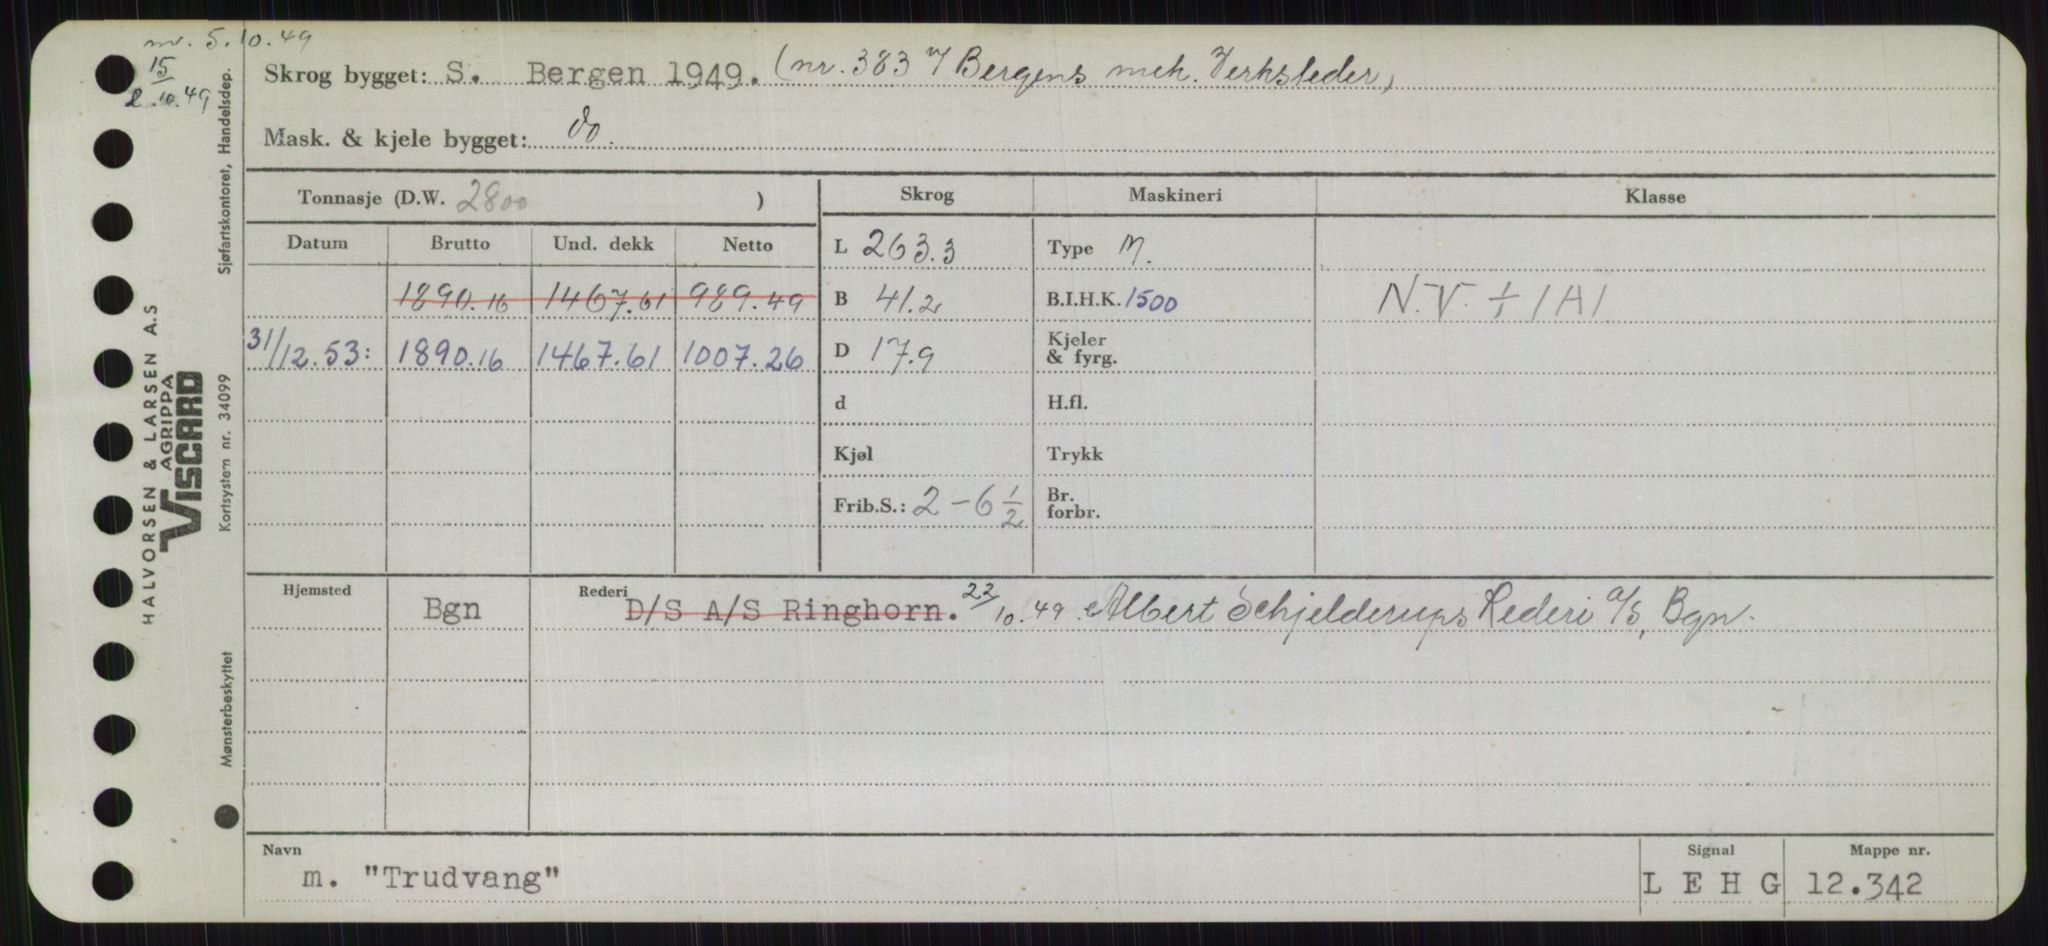 nr. 5.10.49
15
2.10.49
Skrog bygget: S. Bergen 1949. (nr. 383 Bergens mek. Verksteder)
Mask. & kjele bygget: do.
Tonnasje (D.W. 2800 )
Skrog
Maskineri
Klasse
Datum Brutto Und. dekk Netto
L 263.3
Type M.
1890.16 1467.61 989.49
B 41.2
B.I.H.K. 1500
N.V. + 1A1
31/12.53: 1890.16 1467.61 1007.26
D 17.9
Kjeler
& fyrg.
d
H.fl.
Kjøl
Trykk
Frib.S.: 2-6 1/2
Br.
forbr.
Hjemsted Bgn
Rederi D/S A/S Ringhorn. 22/10.49. Albert Schjelderups Rederi a/s, Bgn.
Navn
Signal
Mappe nr.
m. "Trudvang"
L E H G
12.342
HALVORSEN & LARSEN A.S
AGRIPPA
VISCARD
Mønsterbeskyttet Kortsystem nr. 34099 Sjøfartskontoret, Handelsdep.